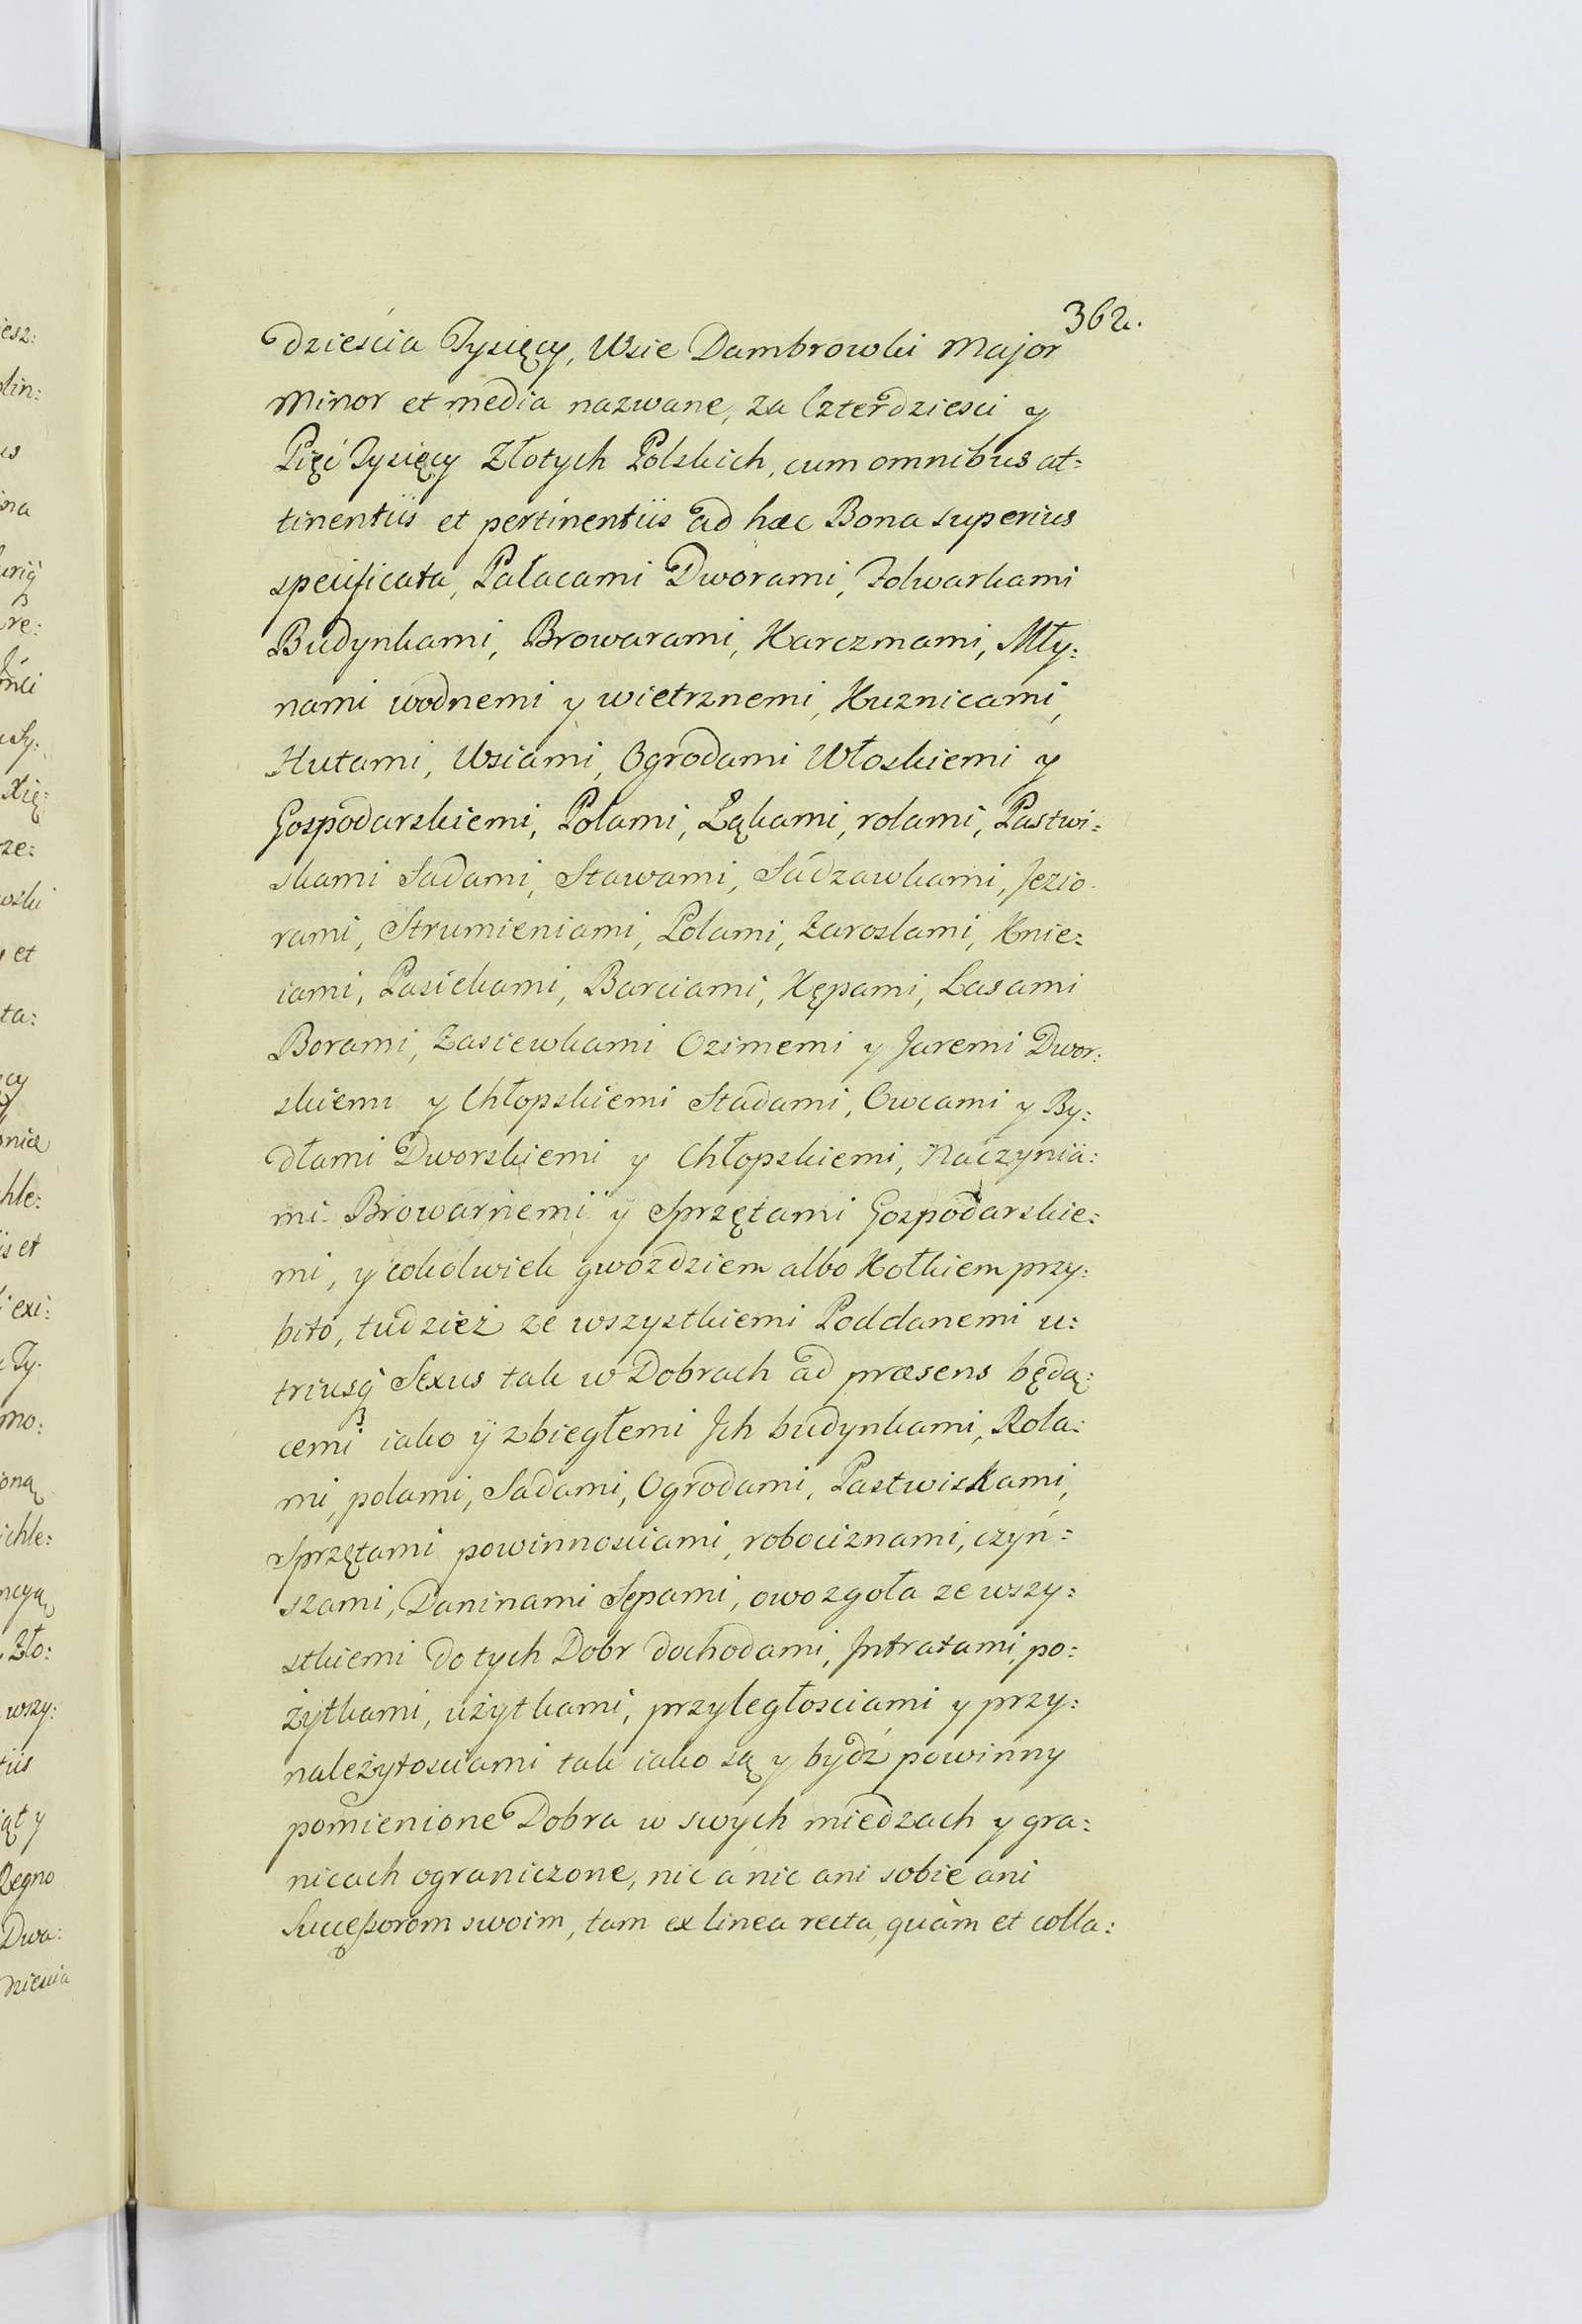 362.
dzieścia Tysięcy, Wsie Dambrowki Major
Minor et media nazwane, za Czterdziesci y
Pięć Tysięcy Złotych Polskich, cum omnibus at:
tinentiis et pertinentiis ad hæc Bona superius
specificata, Pałacami Dworami, Folwarkami
Budynkami, Browarami, Karczmami, Mły:
nami wodnemi y wietrznemi, Kuznicami,
Hutami, Wsiami, Ogrodami Włoskiemi y
Gospodarskiemi, Polami, Łąkami, rolami, Pastwi:
skami Sadami, Stawami, Sadzawkami, Jezio.
rami, Strumieniami, Polami, Zaroslami, Knie:
iami, Pasiekami, Barciami, Kępami, Lasami
Borami, Zasiewkami Ozimemi y Jaremi Dwor:
skiemi y Chłopskiemi Stadami, Owcami y By:
dłami Dworskiemi y Chłopskiemi, Naczynia:
mi Browarnemi y Sprzętami Gospodarskie:
mi, y cokolwiek gwozdziem albo Kołkiem przy:
bito, tudzież ze wszystkiemi Poddanemi u:
triusq́ Sexus tak w Dobrach ad præsens będą:
cemi iako ÿ zbiegłemi Jch budynkami, Rola:
mi, polami, Sadami, Ogrodami, Pastwiskami,
Sprzętami powinnosciami, robociznami, czyń:
szami, Daninami Sępami, owo zgoła ze wszy:
stkiemi do tych Dobr dochodami, Jntratami, po:
żytkami, użytkami, przyległosciami y przy:
należytosciami tak iako są y bydź powinny
pomienione Dobra w swych miedzach y gra:
nicach ograniczone, nic a nic ani sobie ani
Sucęßorom swoim, tam ex linea recta, quàm et colla: